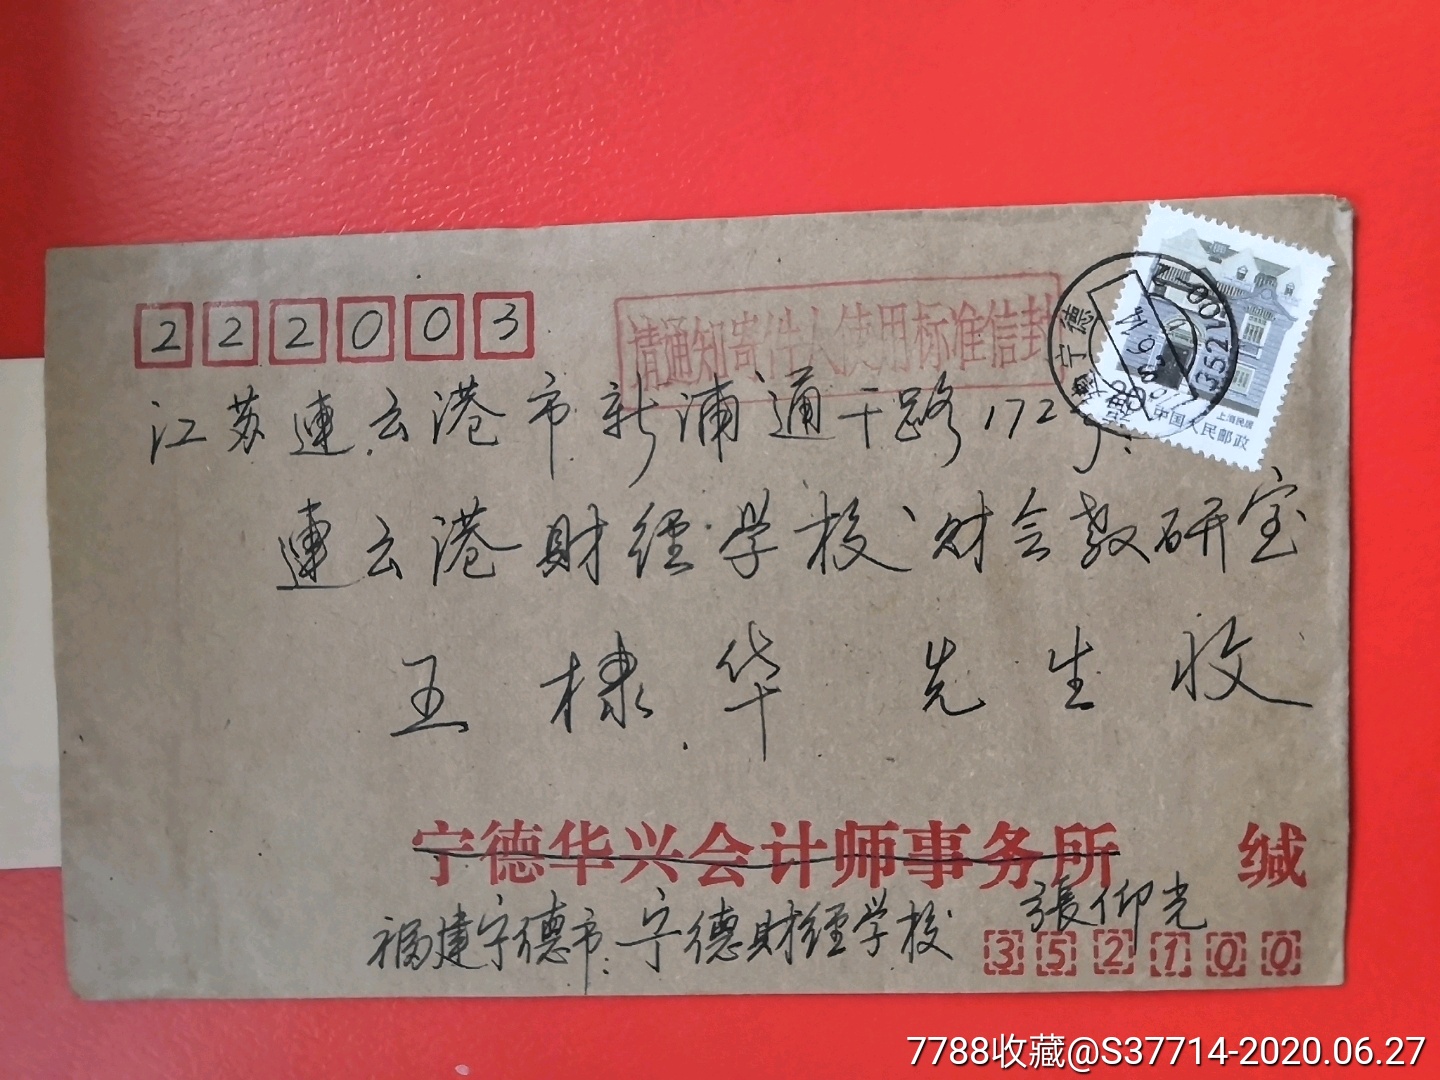 222003
请通知寄件人使用标准信封
福建宁德
352100
上海民居
中国人民邮政
江苏連云港市新浦通干路172号
連云港財經学校财会教研室
王棣华 先生收
宁德华兴会计师事务所 缄
福建宁德市宁德財經学校 張仰光
352100
7788收藏@S37714-2020.06.27